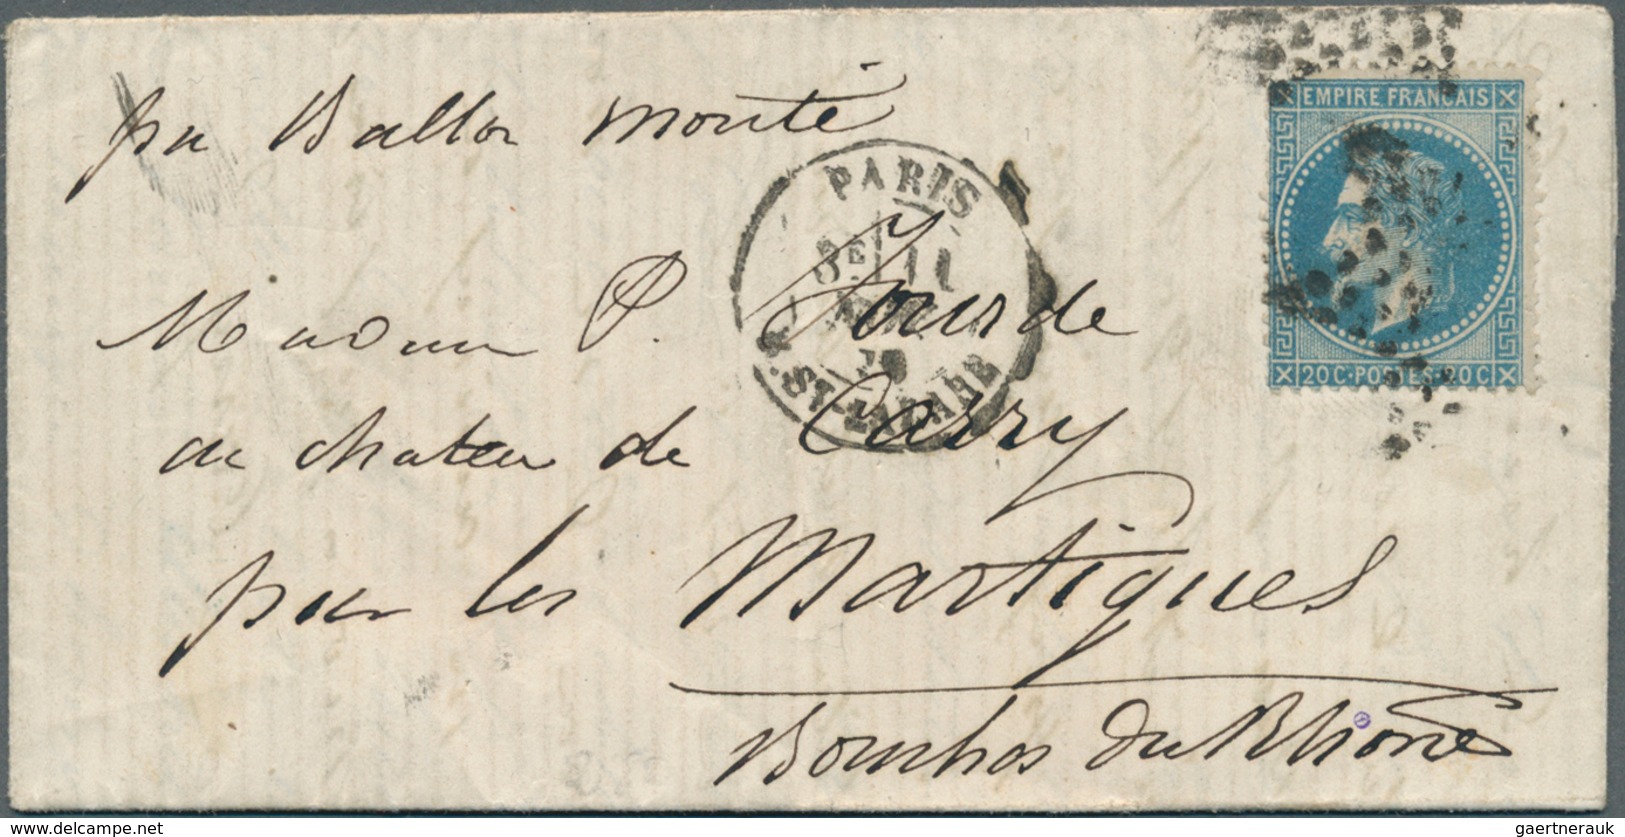 par Ballon monté
PARIS
5E 11
R. ST-LAZARE
EMPIRE FRANCAIS
20C·POSTES·20C
Madame P. Jourde
au chateau de Carry
par les Martigues
Bouches du Rhône
gaertnerauk